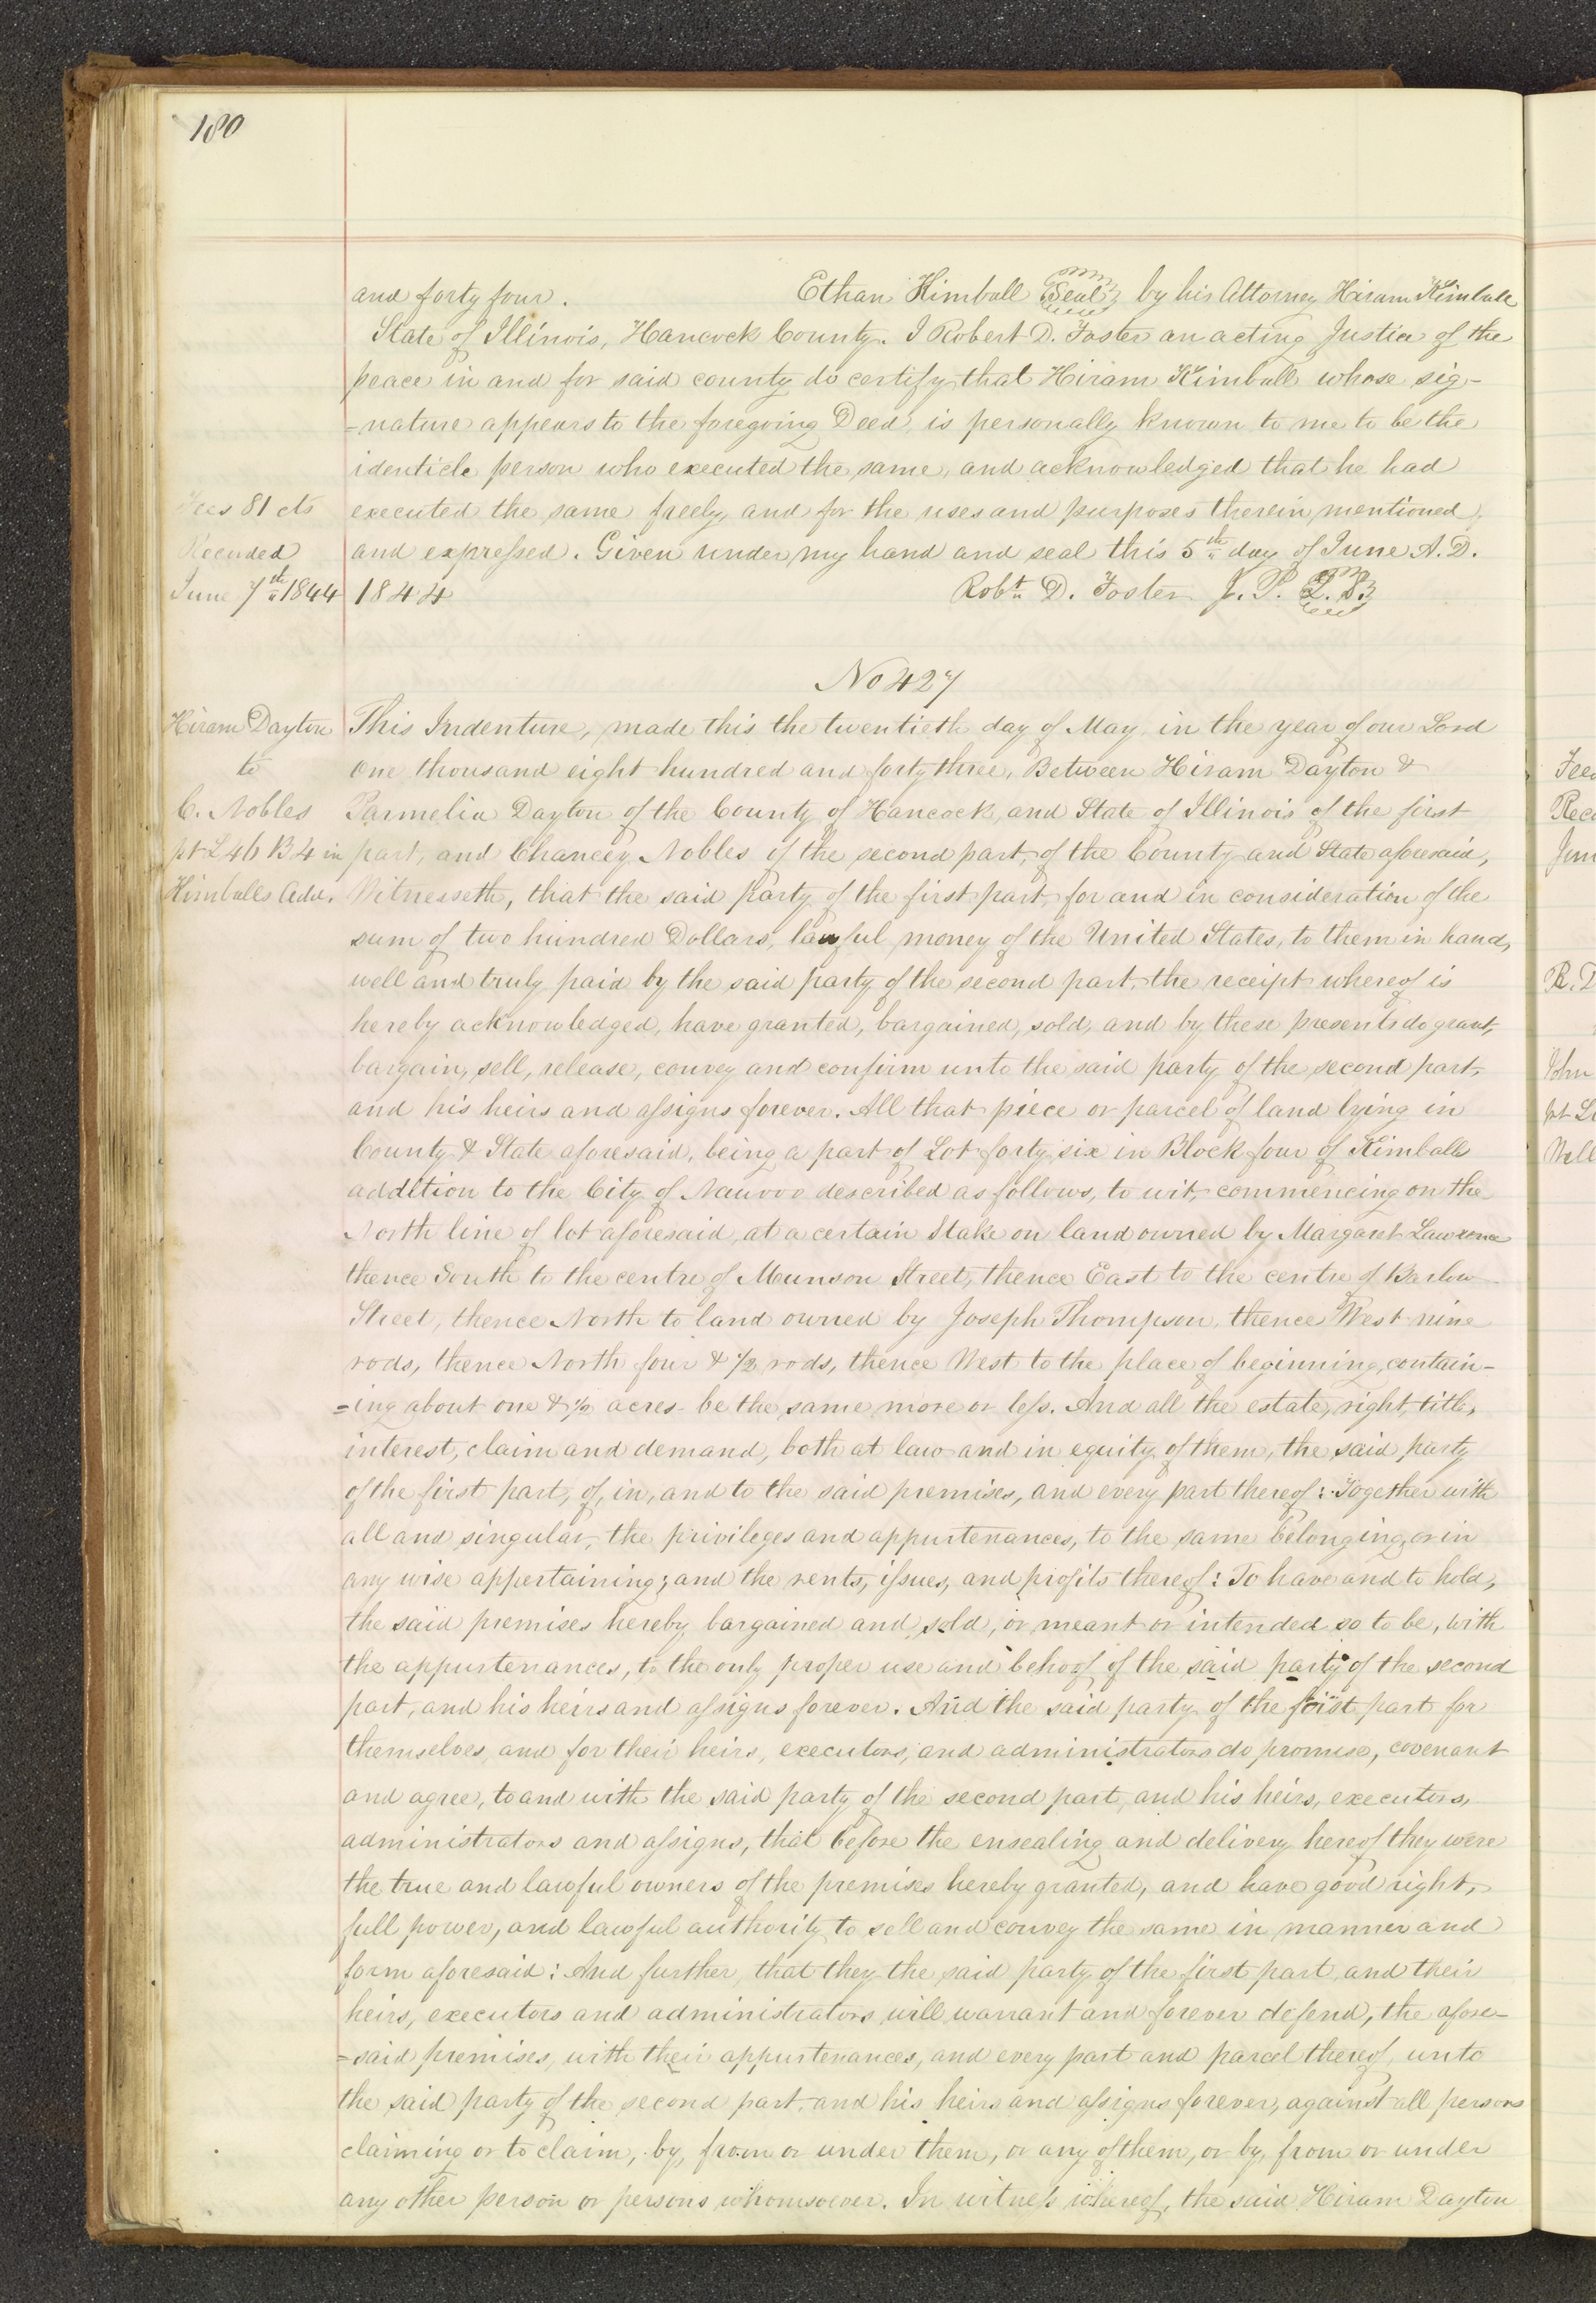 180
and forty four. Ethan Kimball Seal by his Attorney Hiram Kimball
State of Illinois, Hancock County. I Robert D. Foster an acting Justice of the
peace in and for said county do certify that Hiram Kimball whose sig-
=nature appears to the foregoing Deed, is personally known to me to be the
identicle person who executed the same, and acknowledged that he had
Fees 81 cts executed the same freely, and for the uses and purposes therein mentioned,
Recorded and expressed. Given under my hand and seal this 5th day of June A.D.
June 7th 1844 1844 Robt. D. Foster J. P. L.S.
No 427
Hiram Dayton This Indenture, made this the twentieth day of May in the year of our Lord
to one thousand eight hundred and forty three, Between Hiram Dayton &
C. Nobles Parmelia Dayton of the County of Hancock, and State of Illinois of the first
pt L 46 B 4 in part, and Chancey Nobles of the second part, of the County and State aforesaid,
Kimballs Add. Witnesseth, that the said Party of the first part, for and in consideration of the
sum of two hundred Dollars, lawful money of the United States, to them in hand,
well and truly paid by the said party of the second part, the receipt whereof is
hereby acknowledged, have granted, bargained, sold, and by these presents do grant,
bargain, sell, release, convey and confirm unto the said party of the second part,
and his heirs and assigns forever. All that piece or parcel of land lying in
County & State aforesaid, being a part of Lot forty six in Block four of Kimballs
addition to the City of Nauvoo described as follows, to wit, commencing on the
North line of lot aforesaid, at a certain Stake on land owned by Margaret Lawrence
thence South to the centre of Munson Street, thence East to the centre of Barlow
Street, thence North to land owned by Joseph Thompson, thence West nine
rods, thence North four & 1/2 rods, thence West to the place of beginning, contain-
=ing about one & 1/2 acres be the same more or less. And all the estate, right, title,
interest, claim and demand, both at law and in equity of them, the said party
of the first part, of, in, and to the said premises, and every part thereof: Together with
all and singular, the privileges and appurtenances, to the same belonging, or in
any wise appertaining; and the rents, issues, and profits thereof: To have and to hold,
the said premises hereby bargained and sold, or meant or intended so to be, with
the appurtenances, to the only proper use and behoof of the said party of the second
part, and his heirs and assigns forever. And the said party of the first part for
themselves, and for their heirs, executors, and administrators do promise, covenant
and agree, to and with the said party of the second part, and his heirs, executors,
administrators and assigns, that before the ensealing and delivery hereof they were
the true and lawful owners of the premises hereby granted, and have good right,
full power, and lawful authority to sell and convey the same in manner and
form aforesaid: And further, that they the said party of the first part, and their
heirs, executors and administrators, will warrant and forever defend, the afore-
=said premises, with their appurtenances, and every part and parcel thereof, unto
the said party of the second part, and his heirs and assigns forever, against all persons
claiming or to claim, by, from or under them, or any of them, or by, from or under
any other person or persons whomsoever. In witness whereof, the said Hiram Dayton